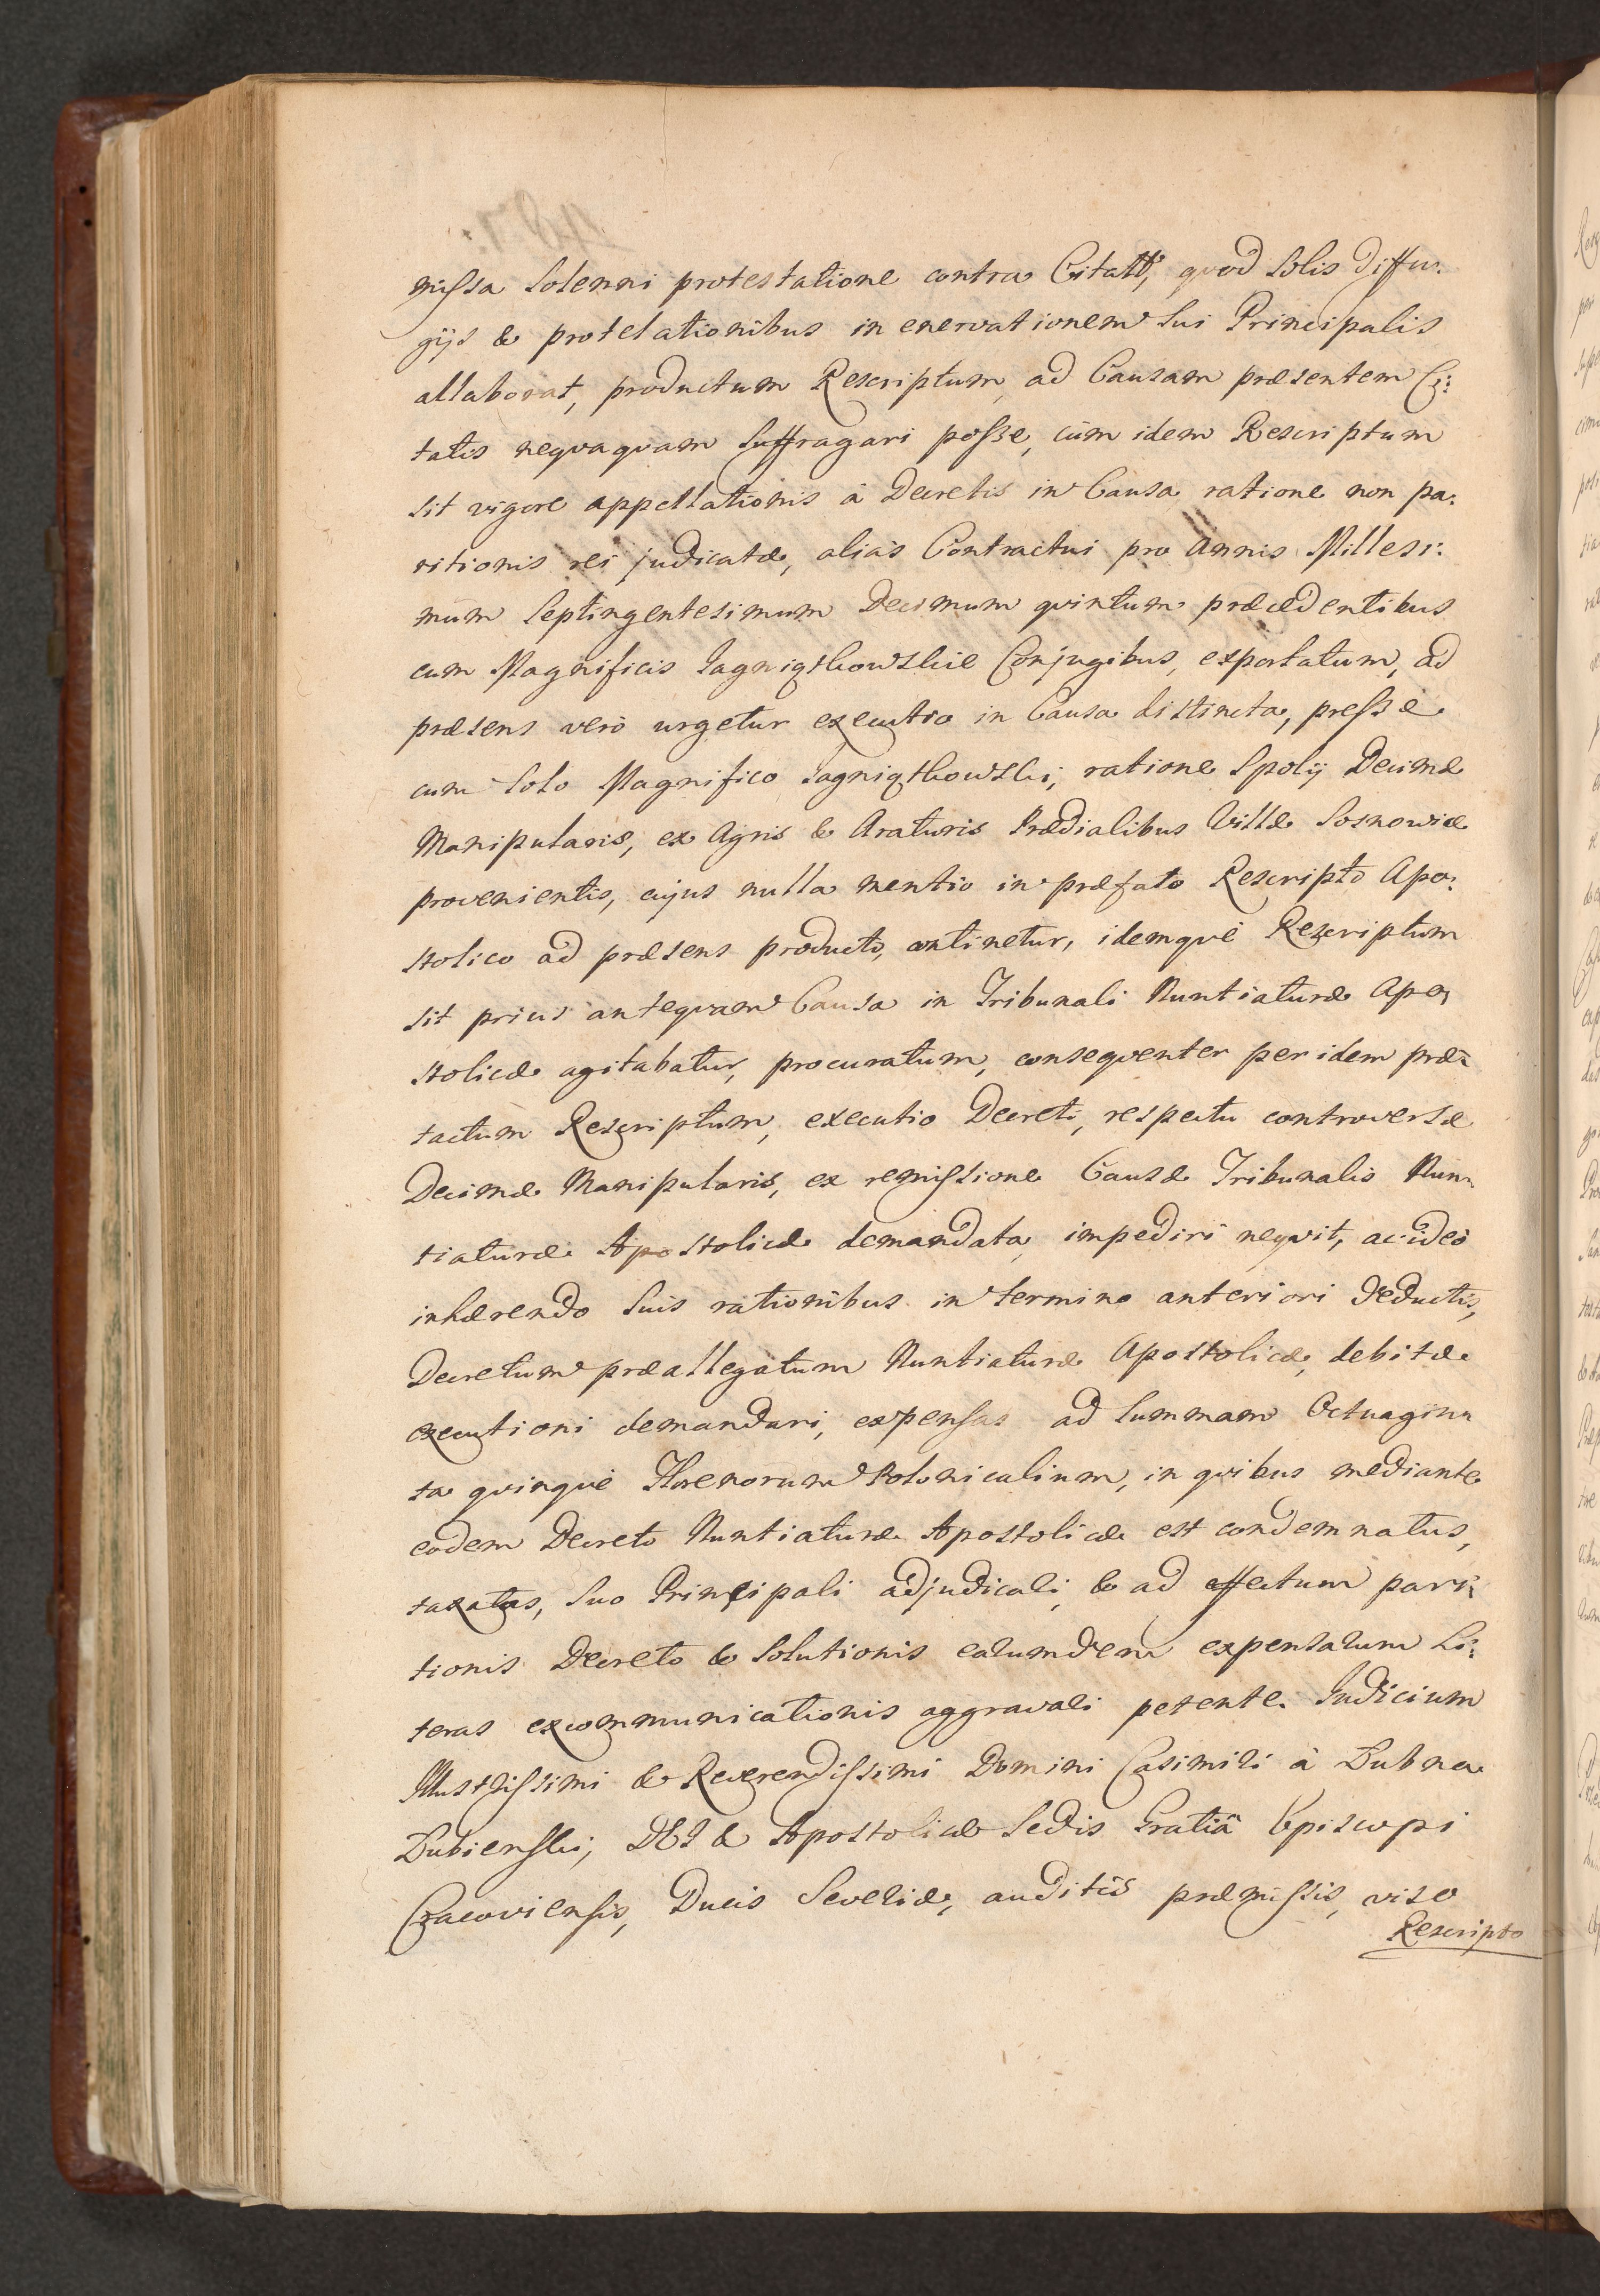 missa Solenni protestatione contra Citatt, quod Solis Diffu:
gijs & protelationibus in enervationem Sui Principalis
allaborat, productum Rescriptum, ad Causam præsentem Ci:
tatis neqvaqvam Suffragari posse, cùm idem Rescriptum
Sit vigore appellationis à Decretis in Causa ratione non pa:
ritionis rei judicatæ, aliàs Contractui pro Annis Millesi:
mum Septingentesimum Decimum qvintum præcedentibus
cum Magnificis Jagniątkowskie Conjugibus, exportatum, ad
præsens verò urgetur executio in Causa distincta, presse
cum Solo Magnifico Jagniątkowski, ratione Spolij Decimæ
Manipularis, ex Agris & Araturis Prædialibus Villæ Sosnowiæ
provenientis, cujus nulla mentio in præfato Rescripto Apo:
stolico ad præsens producto, continetur, idemqve Rescriptum
sit prius anteqvam Causa in Tribunali Nuntiaturæ Apo:
stolicæ agitabatur, procuratum, conseqventer per idem præ:
tactum Rescriptum, executio Decreti, respectu controversæ
Decimæ Manipularis, ex remissione Causæ Tribunalis Nun:
tiaturæ Apostolicæ demandata, impediri neqvit, ac ideò
inhærendo Suis rationibus in termino anteriori deductis,
Decretum præallegatum Nuntiaturæ Apostolicæ, debitæ
executioni demandari, expensas ad Summam Octuagin:
ta qvinqve Florenorum Polonicalium, in qvibus mediante
eodem Decreto Nuntiaturæ Apostolicæ est condemnatus,
taxatas, Suo Principali adjudicari, & ad effectum pari:
tionis Decreto & Solutionis earumdem expensarum Li:
teras excommunicationis aggravari petente. Judicium
Illustrissimi & Reverendissimi Domini Casimiri à Lubna
Lubienski, DEI & Apostolicæ Sedis Gratiâ Episcopi
Cracoviensis, Ducis Severiæ, auditis præmissis, viso
Rescripto